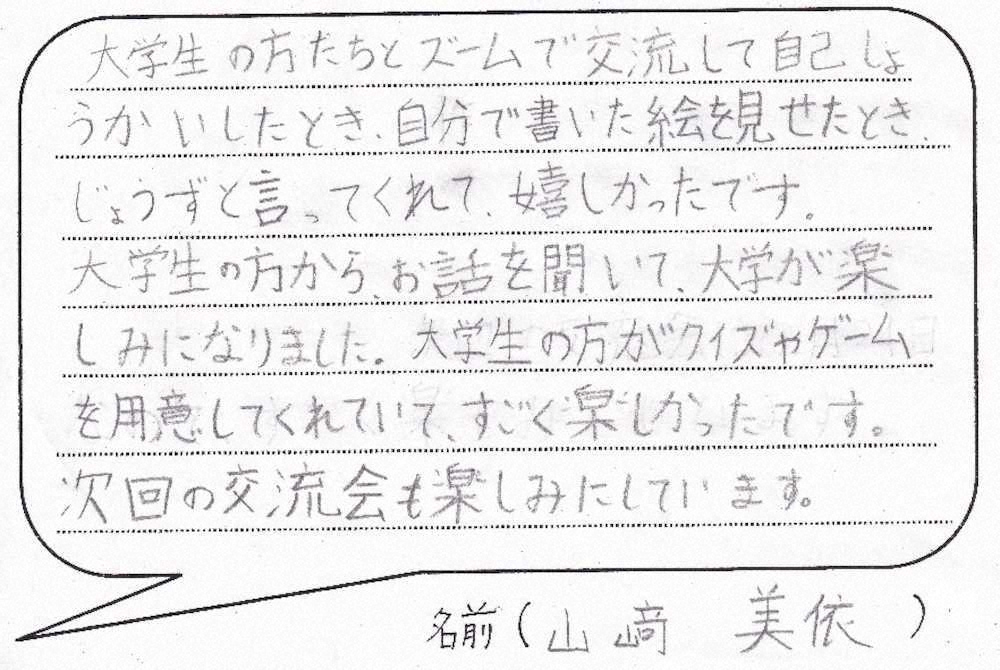 大学生の方たちとズームで交流して自己しょ
うかいしたとき、自分で書いた絵を見せたとき、
じょうずと言ってくれて、嬉しかったです。
大学生の方から、お話を聞いて、大学が楽
しみになりました。大学生の方がクイズやゲーム
を用意してくれていて、すごく楽しかったです。
次回の交流会も楽しみにしています。
名前(山﨑 美依)